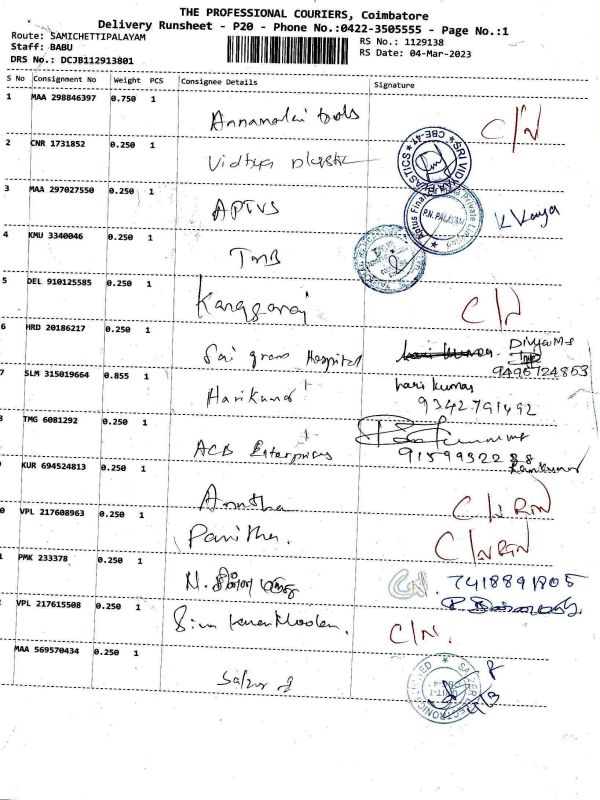 THE PROFESSIONAL COURIERS, Coimbatore
Delivery Runsheet - P20 - Phone No.:0422-3505555 - Page No.:1
Route: SAMICHETTIPALAYAM
RS No.: 1129138
Staff: BABU
RS Date: 04-Mar-2023
DRS No.: DCJB112913801
S No Consignment No Weight PCS Consignee Details Signature
1 MAA 298846397 0.750 1 Annamalai tools C/N
2 CNR 1731852 0.250 1 Vidhya plastic
SRI VIDYAA PLASTICS CBE-47
3 MAA 297027550 0.250 1 APTUS
P.N. PALAYAM
4 KMU 3340046 0.250 1 TMB
5 DEL 910125585 0.250 1 Kanagaraj C/N
6 HRD 20186217 0.250 1 Sai grans Hospital
7 SLM 315019664 0.855 1 Harikumar hari kumar
9342791492
TMG 6081292 0.250 1 ACB Enterprises
9159932288
Ramkumar
KUR 694524813 0.250 1 C/N RTN
0 VPL 217608963 0.250 1 Pavithra C/N RTN
PMK 233378 0.250 1 CN. 7418891805
VPL 217615508 0.250 1 C/N.
MAA 569570434 0.250 1 Salzer